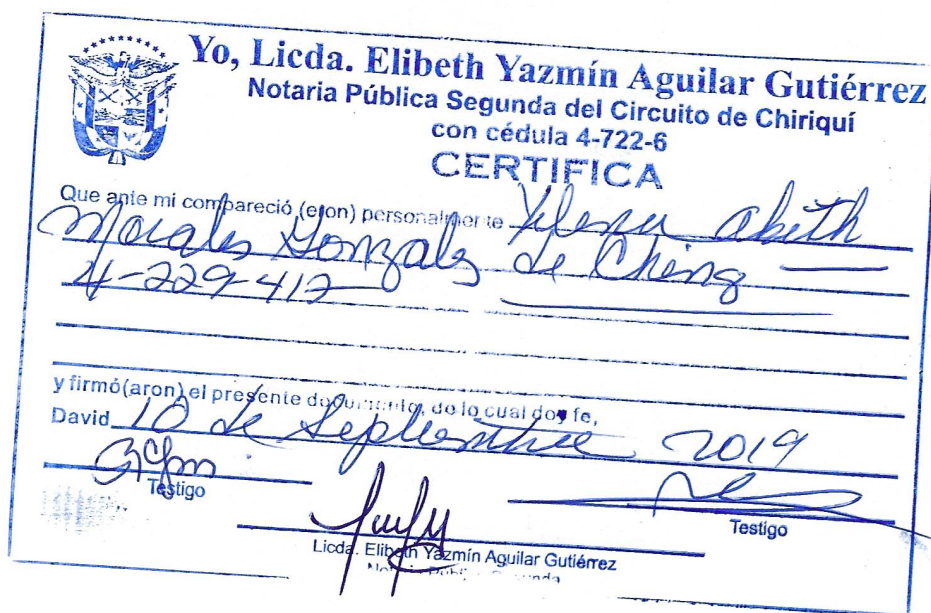 Yo, Licda. Elibeth Yazmín Aguilar Gutiérrez
Notaria Pública Segunda del Circuito de Chiriquí
con cédula 4-722-6
CERTIFICA
Que ante mi compareció (eron) personalmente abeth
Morales Gonzales de Ching
4-229-412
y firmó(aron) el presente documento, de lo cual doy fe,
David 10 de Septiembre 2019
Testigo
Testigo
Licda. Elibeth Yazmín Aguilar Gutiérrez
Notaria Pública Segunda